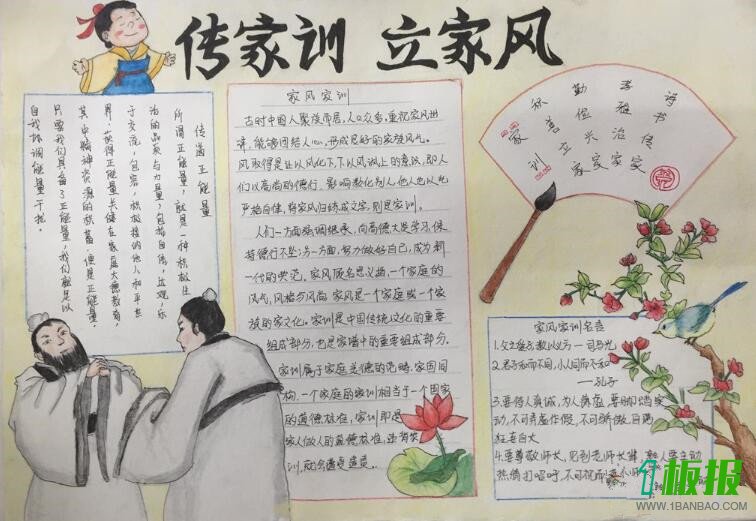 传家训 立家风
传递正能量
所谓正能量,就是一种积极生
治的品质与力量,包括自信,达观,乐
于交流,包容,积极接纳他人和平世
界,获得正能量关键在家庭大德教育,
其中精神资源的积蓄,便是正能量,
只要我们具备了正能量,我们就是以
自我抵调能量干扰。
家风家训
古时中国人聚族而居,人口众多,重视家风训
能够团结人心,形成良好的家族风气。
风取得是让以风化下,下以风讽上的意识,即人
们以高尚的德行,影响教化别人,他人也从此
严格自律,将家风归结成文字,则是家训。
人们一方面强调继承,向高德大贤学习,保
持德行不坠;另一方面,努力做好自己,成为新
一代的典范。家风顾名思义指一个家庭的
风气,风格与风尚。家风是一个家庭或一个家
族的家文化。家训是中国传统文化的重要
组成部分,也是家谱中的重要组成部分。
家训属于家庭美德的范畴,家国同
构,一个家庭的家训相当于一个国家
的道德标准,家训即是
家人做人的道德标准
诗书传家
孝雅治家
勤俭兴家
和善立家
家训
家风家训名言
1.父之爱子,教以义方 — 司马光
2.君子和而不同,小人同而不和
—孔子
3.要待人真诚,为人谦虚,要脚踏实
动,不可弄虚作假,不可骄傲,自满
狂妄自大
4.要尊敬师长,见到老师长辈,熟人要主动
热情打招呼,不可视而
1板报
WWW.1BANBAO.COM